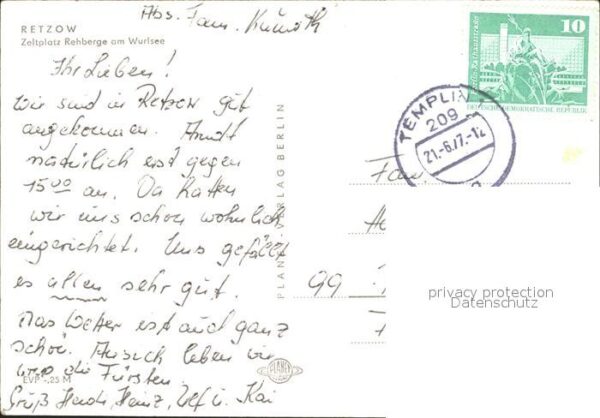 Abs. Fam.
RETZOW
Zeltplatz Rehberge am Wurlsee
Ihr Lieben!
Wir sind in Retzow gut
angekommen. Arndt
natürlich erst gegen
15⁰⁰ an. Da hatten
wir uns schon wohnlich
eingerichtet. Uns gefällt
es allen sehr gut.
Das Wetter ist auch ganz
schön. Ansich leben wir
wie die Fürsten.
Gruß Heide, Heinz, Ulf u. Kai
EVP -,25 M
PLANET-VERLAG BERLIN
PLANET
10
DEUTSCHE DEMOKRATISCHE REPUBLIK
TEMPLIN
209
21.-6.77.-12
Fam.
99
privacy protection
Datenschutz